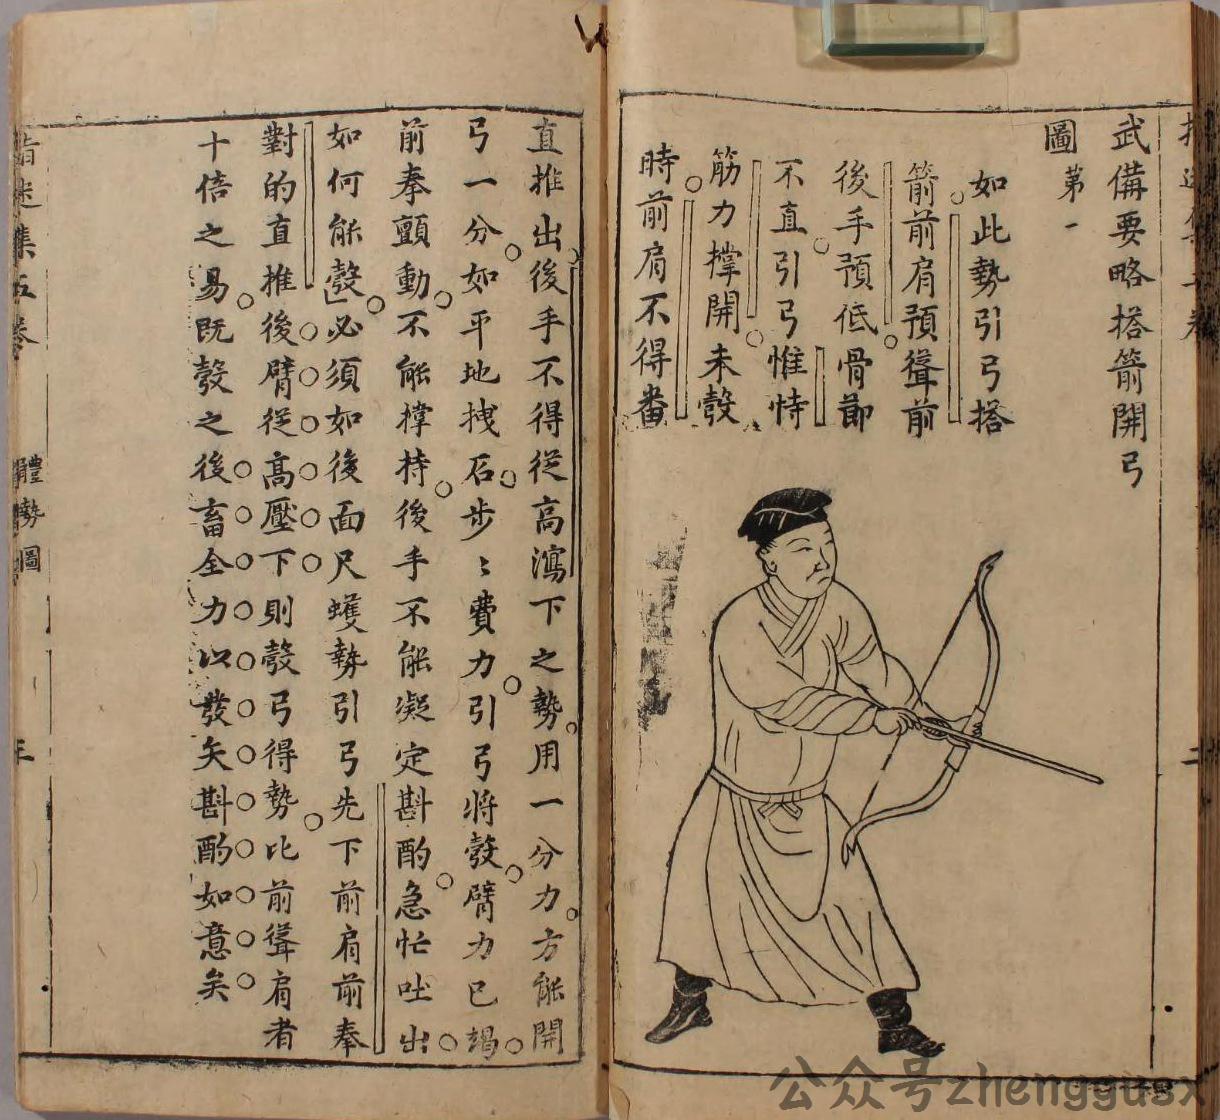 武備要略搭箭開弓
圖第一
如此勢引弓搭
箭前肩預聳前
後手預低骨節
不直引弓惟恃
筋力撑開未彀
時前肩不得番
二
直推出後手不得從高瀉下之勢用一分力方能開
弓一分如平地拽石步〻費力引弓將彀臂力已竭
前拳顫動不能撑持後手不能凝定斟酌急忙吐出
如何能彀必須如後面尺蠖勢引弓先下前肩前拳
對的直推後臂從高壓下則彀弓得勢比前聳肩者
十倍之易既彀之後畜全力以發矢斟酌如意矣
指迷集五卷
體勢圖
三
公众号zhenggusx